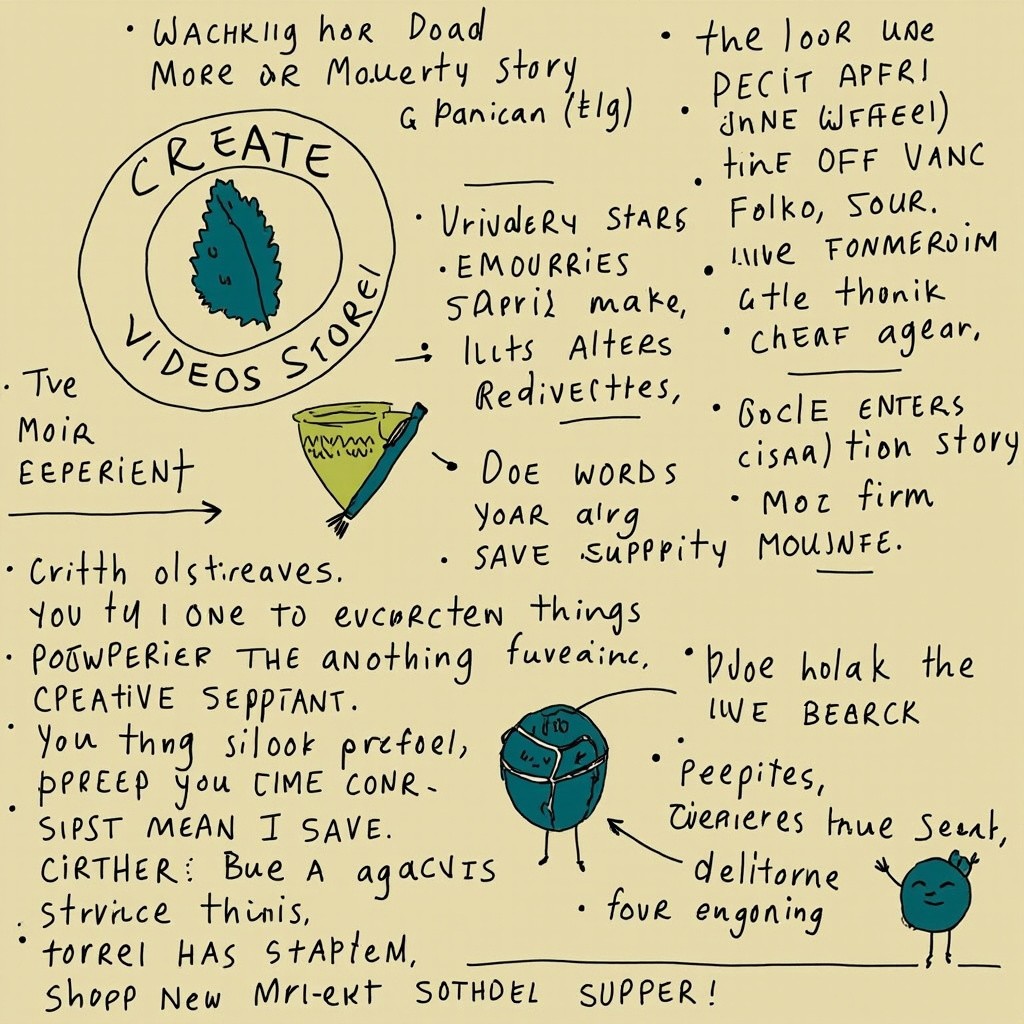 WACHKIIg hor Doad
More or Mouerty story
a Panican (tlg)
CREATE
VIDEOS STORE!
Tve
Moir
EEPERIENT
Vrivdery stars
EMOURRIES
5April make,
Iluts Alters
Redivecttes,
Doe words
your alrg
SAVE supppity MOUJNFE.
the loor une
PECIT APFRI
JnNE WFFEEl)
tine OFF VANC
Folko, sour.
live FONMEROIM
atle thonik
cheaf agear,
Gocle ENTERS
cisaa) tion story
Moz firm
Critth olstireaves.
you ty I one to evcorcten things
POOWPERIER THE anothing fuveainc,
CPEATIVE SEPPTANT.
You thng silook prefoel,
PPREEP you CIME CONR-
SIPST MEAN I SAVE.
CIRTHER: Bue A agacvis
strvice thinis,
torrel HAS STAPTEM,
Shopp New Mri-ekt SOTHOEL SUPPER!
Pdoe holak the
IWE BEARCK
Peepites,
Cieanieres true Seent,
delitorne
four engoning